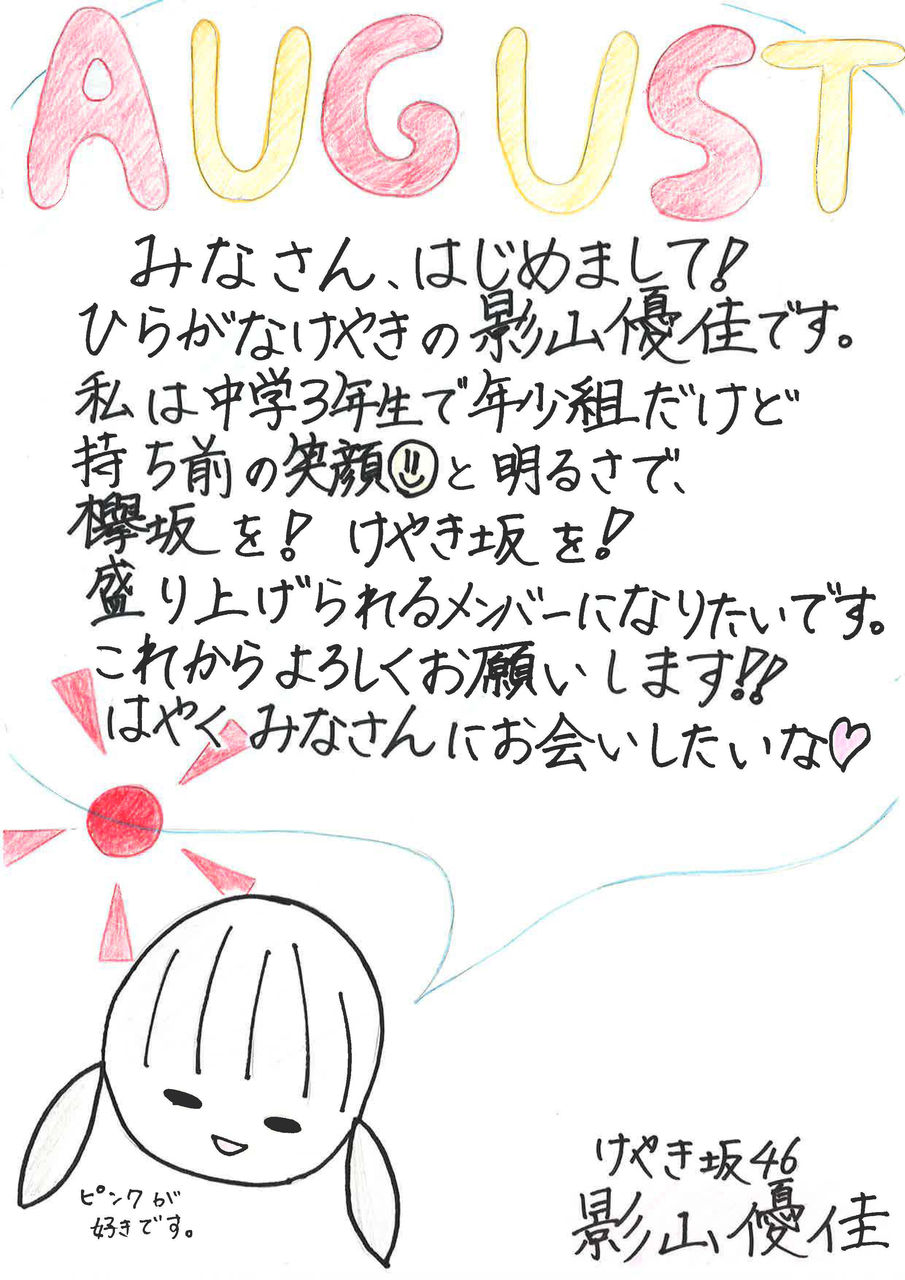 AUGUST
みなさん、はじめまして!
ひらがなけやきの影山優佳です。
私は中学3年生で年少組だけど
持ち前の笑顔と明るさで、
欅坂を! けやき坂を!
盛り上げられるメンバーになりたいです。
これからよろしくお願いします!!
はやくみなさんにお会いしたいな♡
ピンクが
好きです。
けやき坂46
影山優佳